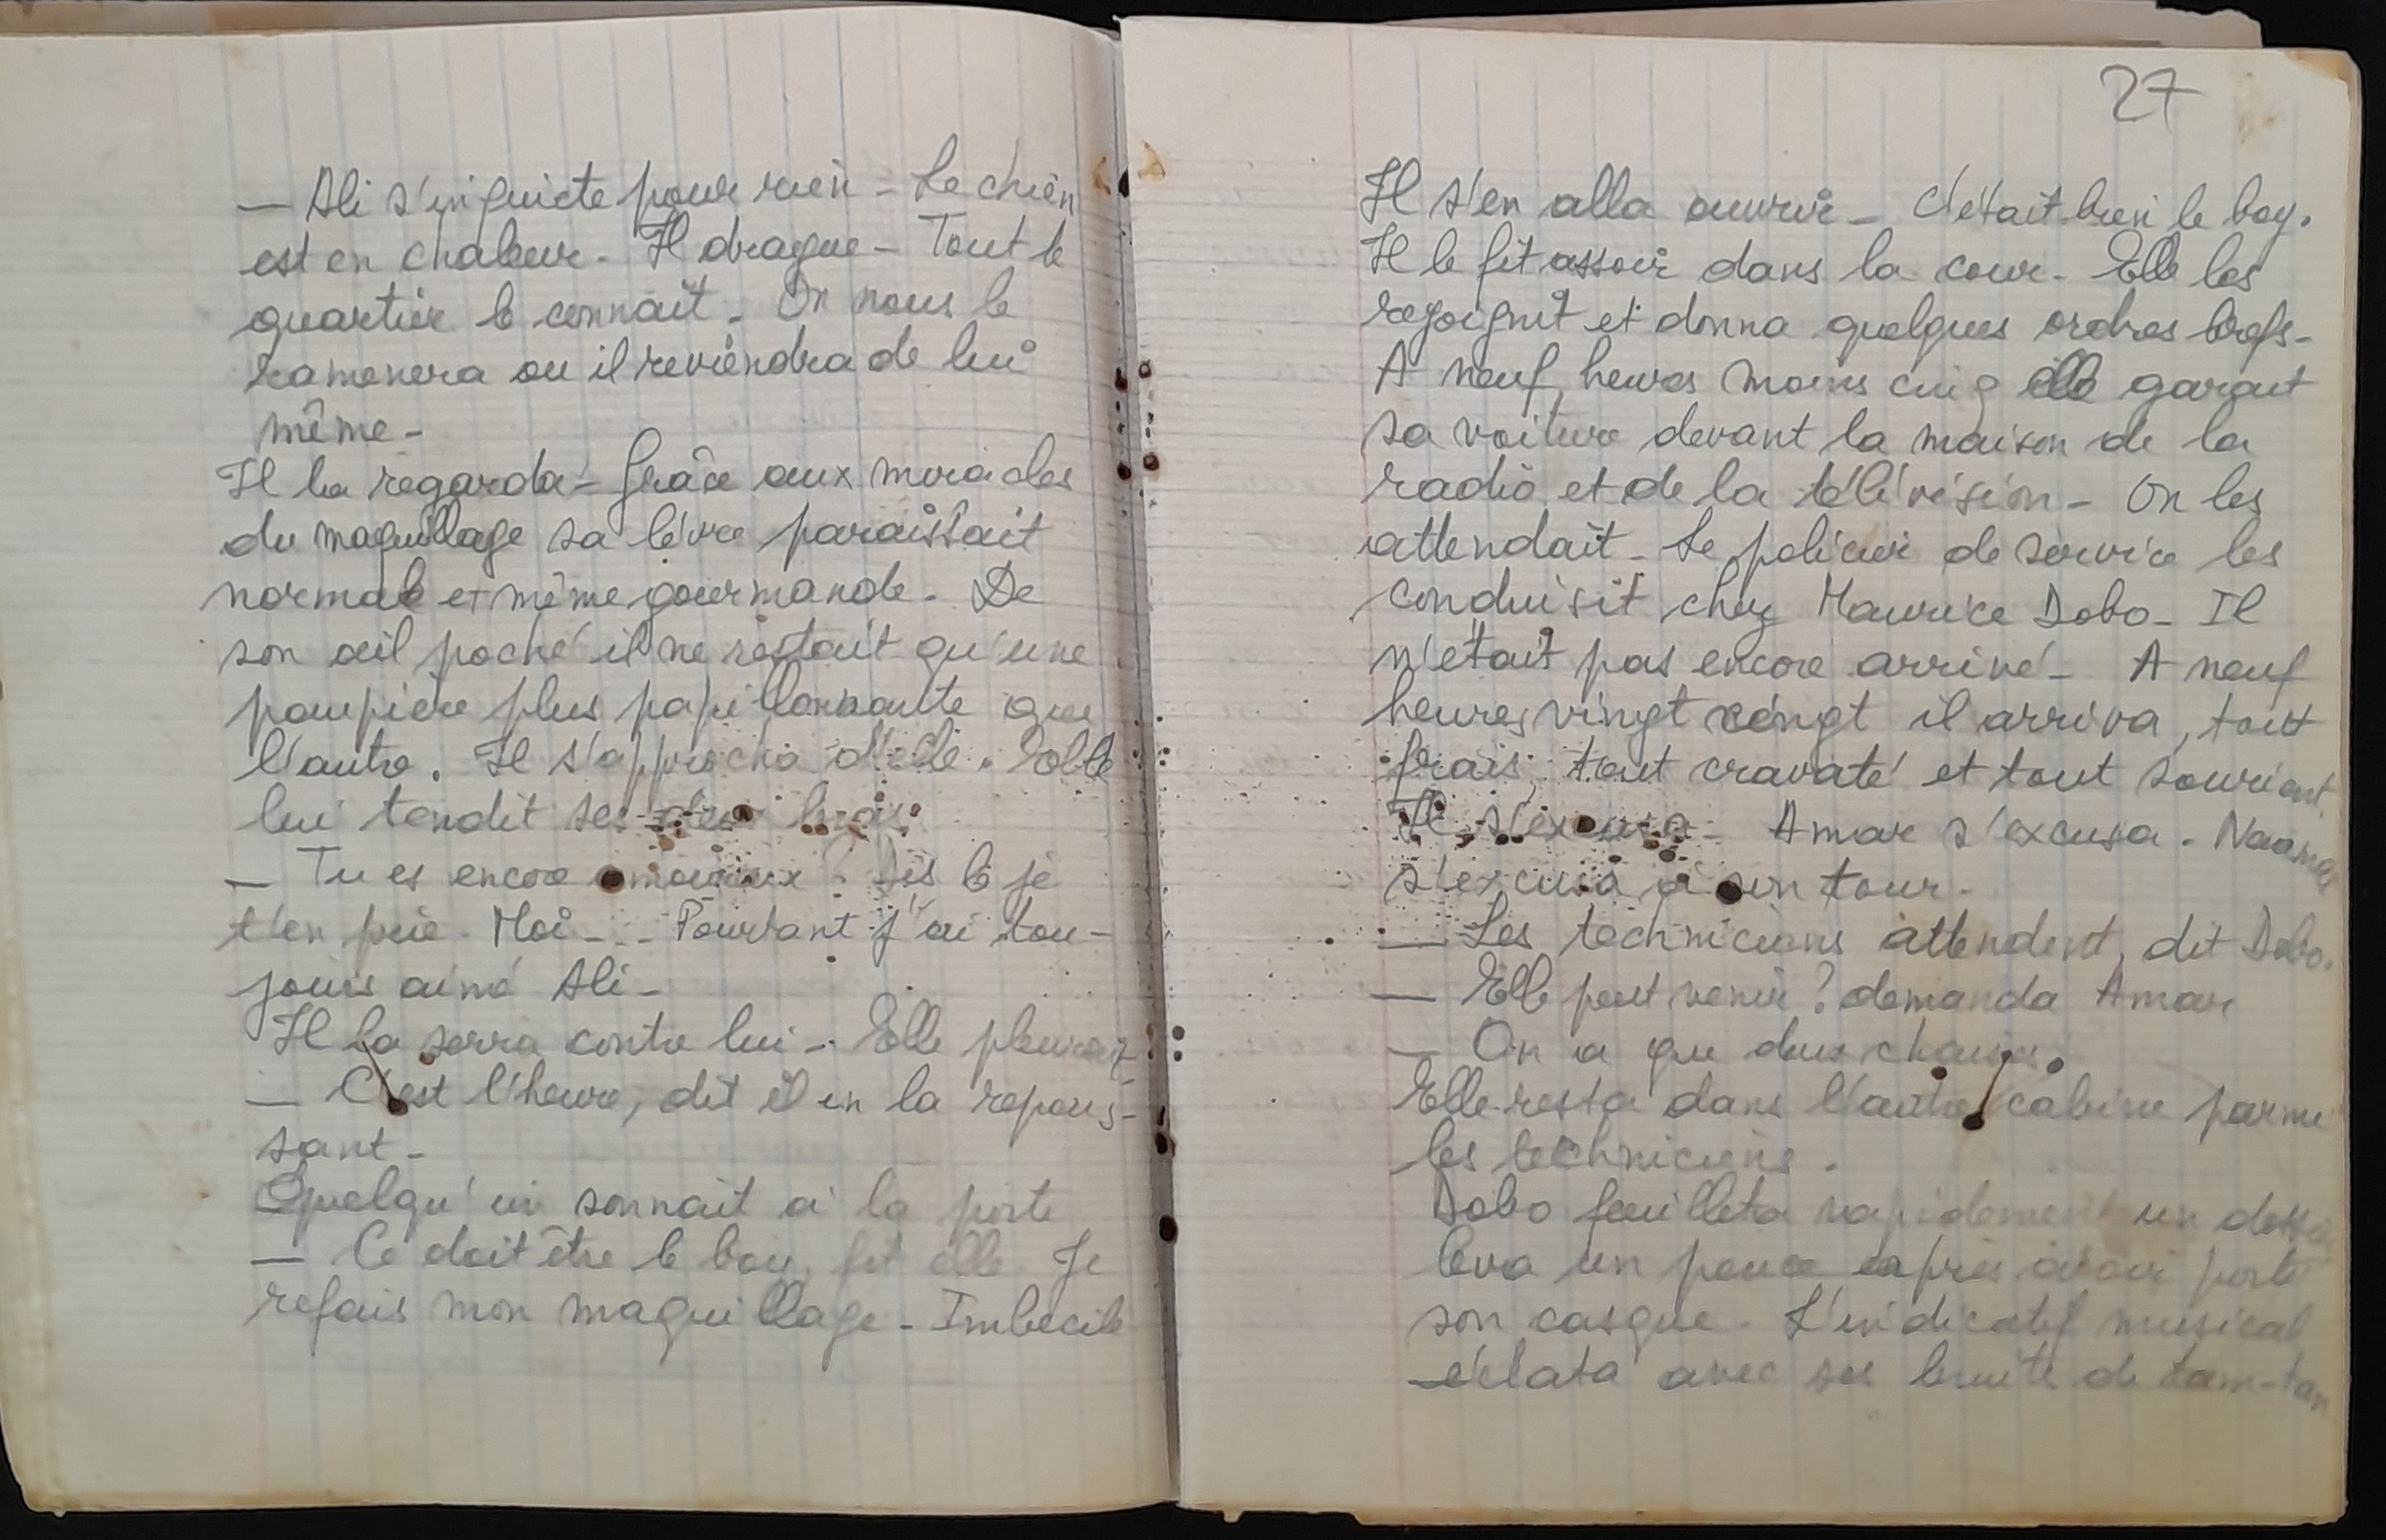 — Ali s'inquiete pour rien - Le chien
est en chaleur. Il drague - Tout le
quartier le connait. On nous le
ramenera ou il reviendra de lui
même -
Il la regarda - Grâce aux miracles
du maquillage sa lèvre paraissait
normale et même gourmande. De
son œil poché il ne restait qu'une
paupière plus papillonnante que
l'autre. Il s'approcha d'elle. Elle
lui tendit ses deux bras
— Tu es encore amoureux ? Dis le je
t'en prie. Moi --- Pourtant j'ai tou-
jours aimé Ali -
Il la serra contre lui - Elle pleurait
— C'est l'heure, dit il en la repous-
sant -
Quelqu'un sonnait à la porte
— Ce doit être le boy, fit elle. Je
refais mon maquillage - Imbecile
27
Il s'en alla ouvrir - C'était bien le boy.
Il le fit assoir dans la cour - Elle les
rejoignit et donna quelques ordres brefs -
A neuf heures moins cinq elle garait
sa voiture devant la maison de la
radio et de la télévision - On les
attendait - Le policier de service les
conduisit chez Maurice Dobo - Il
n'était pas encore arrivé - A neuf
heures vingt cinq il arriva, tout
frais, tout cravaté et tout souriant
Il s'excusa - Amar s'excusa. Naama
s'excusa à son tour -
— Les techniciens attendent, dit Dobo.
— Elle peut venir ? demanda Amar
— On a que deux chaises.
Elle resta dans l'autre cabine parmi
les techniciens.
Dobo feuilleta rapidement un dossier
leva un pouce après avoir porté
son casque. L'indicatif musical
éclata avec ses bruits de tam-tam